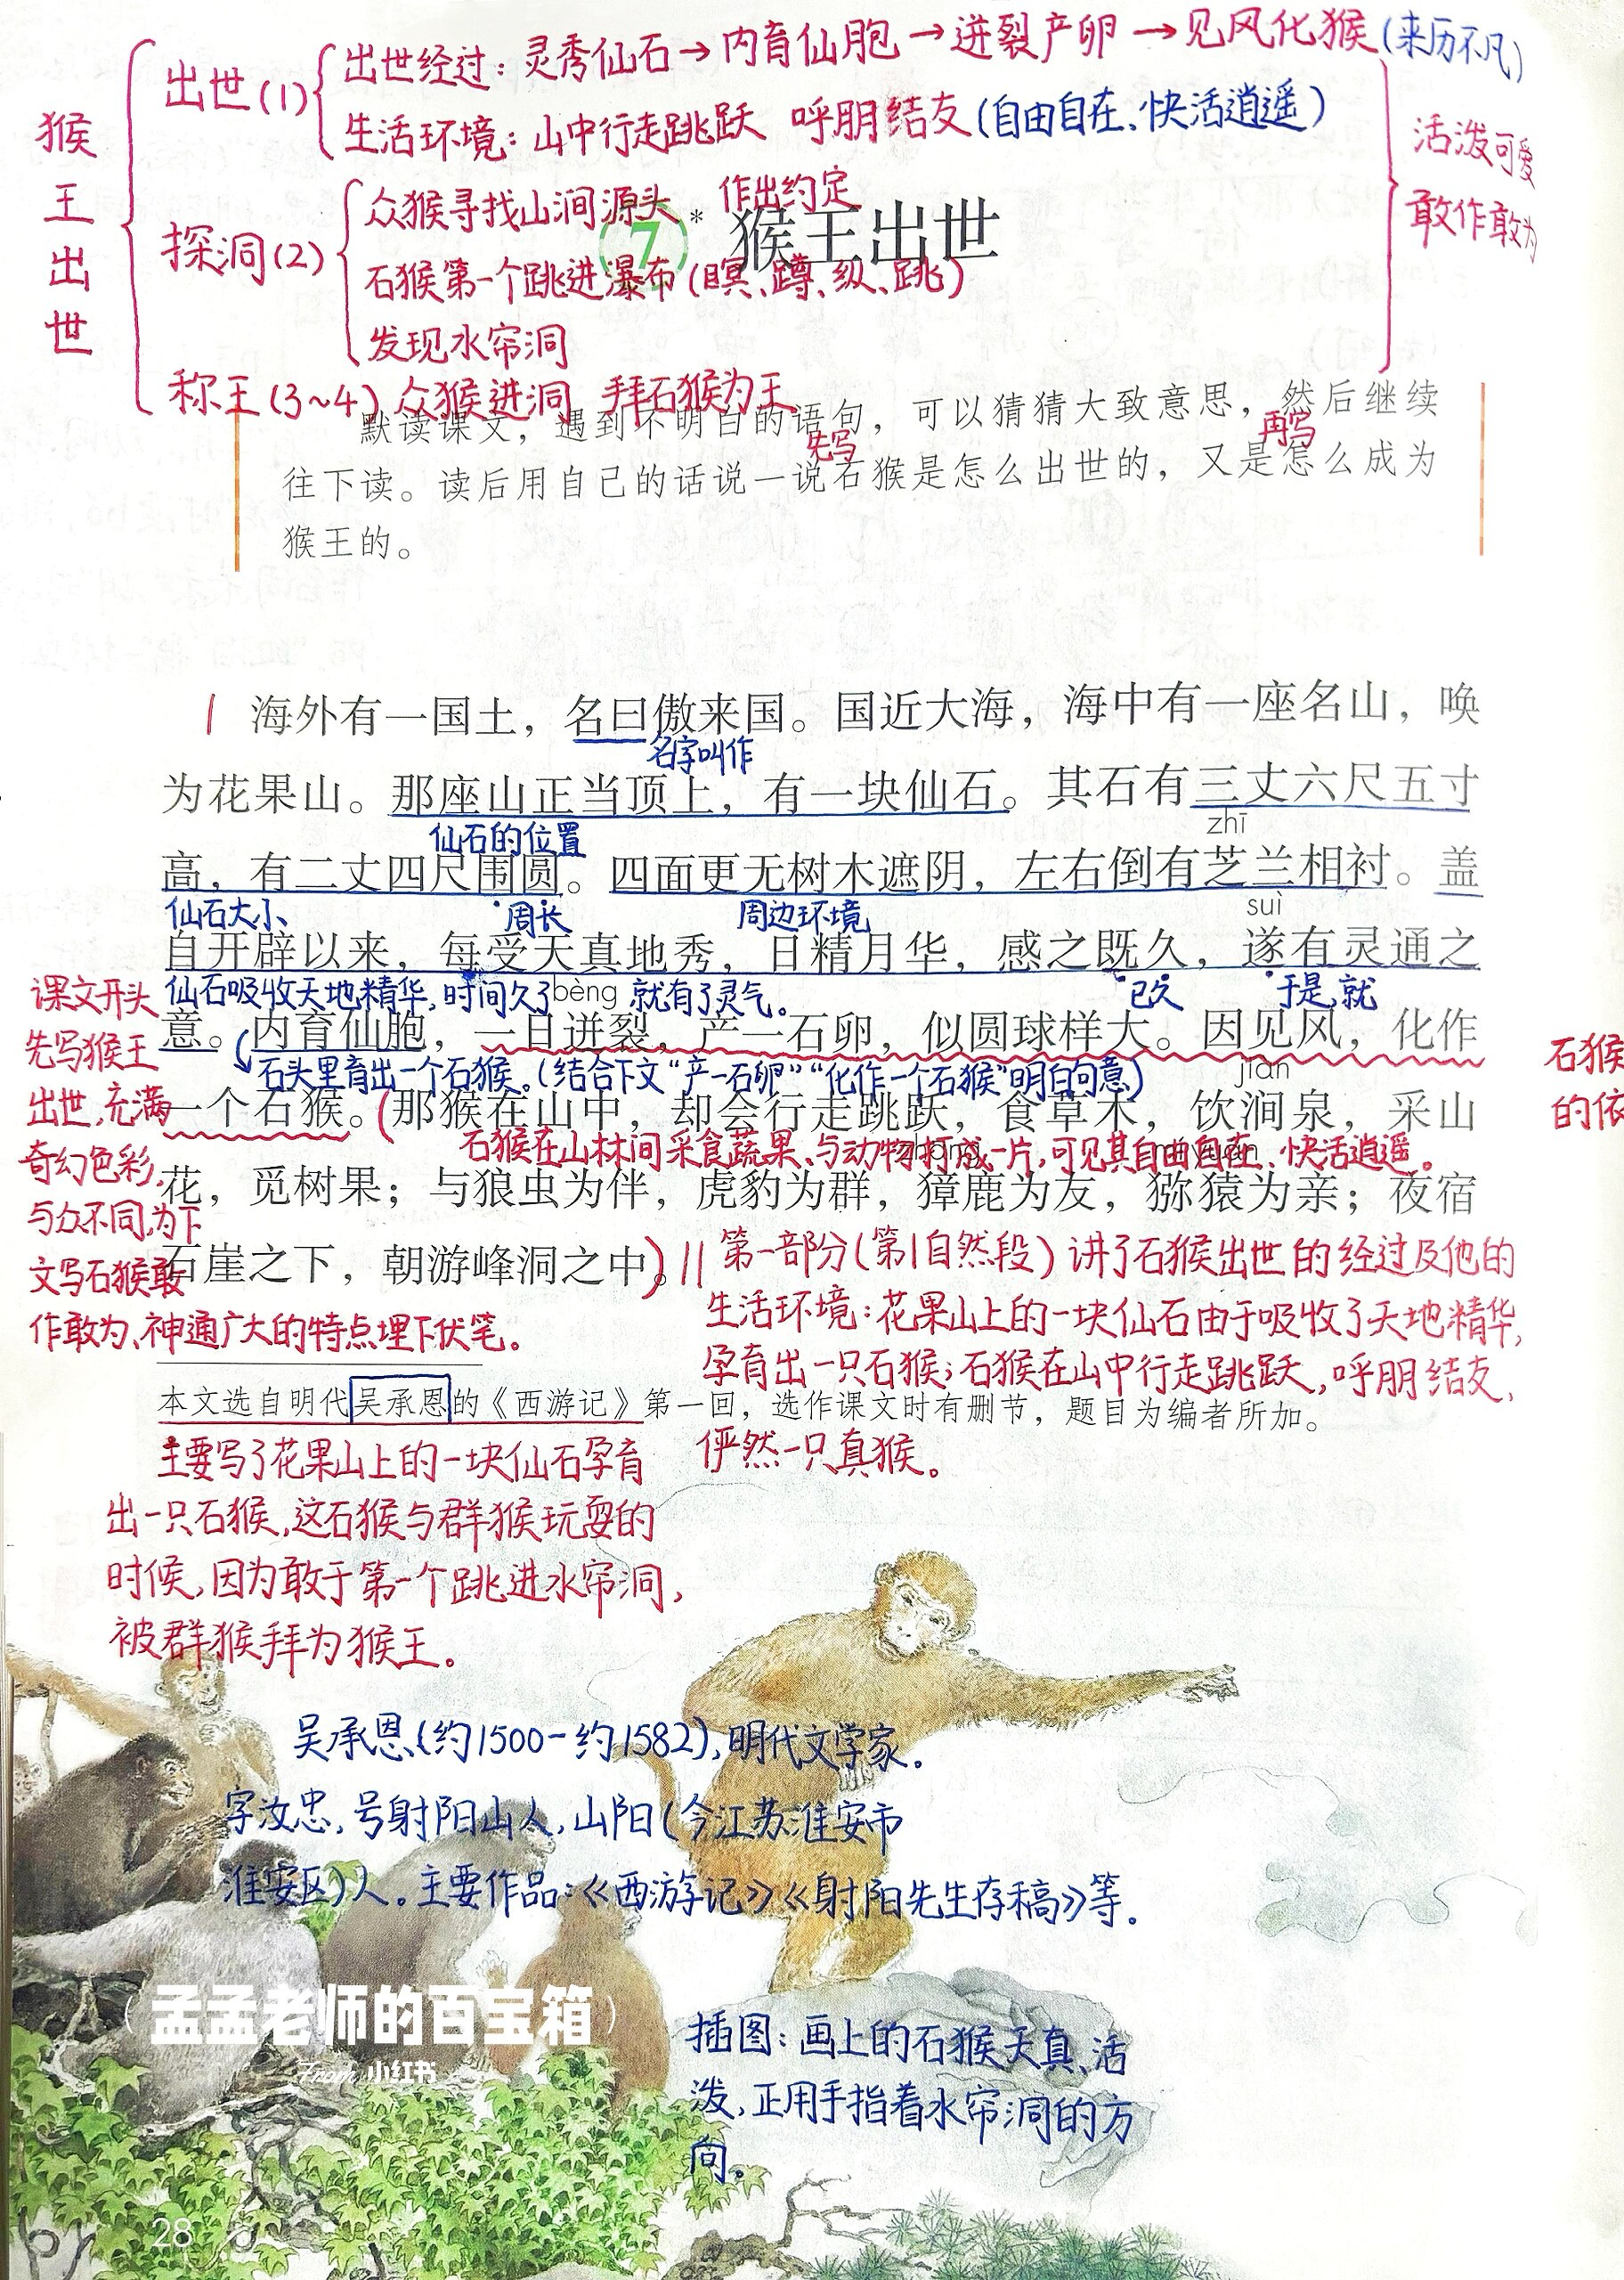 猴王出世
出世(1)
出世经过：灵秀仙石→内育仙胞→迸裂产卵→见风化猴(来历不凡)
生活环境：山中行走跳跃 呼朋结友(自由自在、快活逍遥)
探洞(2)
众猴寻找山涧源头 作出约定
石猴第一个跳进瀑布(瞑、蹲、纵、跳)
发现水帘洞
称王(3~4) 众猴进洞 拜石猴为王
活泼可爱
敢作敢为
7* 猴王出世
默读课文，遇到不明白的语句，可以猜猜大致意思，然后继续
先写 再写
往下读。读后用自己的话说一说石猴是怎么出世的，又是怎么成为
猴王的。
1 海外有一国土，名曰傲来国。国近大海，海中有一座名山，唤
名字叫作
为花果山。那座山正当顶上，有一块仙石。其石有三丈六尺五寸
仙石的位置 zhī
高，有二丈四尺围圆。四面更无树木遮阴，左右倒有芝兰相衬。盖
仙石大小 周长 周边环境 suì
自开辟以来，每受天真地秀，日精月华，感之既久，遂有灵通之
仙石吸收天地精华，时间久了就有了灵气。 已久 于是，就
bèng
意。内育仙胞，一日迸裂，产一石卵，似圆球样大。因见风，化作
石头里育出一个石猴。(结合下文“产一石卵”“化作一个石猴”明白句意)
jiàn
一个石猴。(那猴在山中，却会行走跳跃，食草木，饮涧泉，采山
石猴在山林间采食蔬果、与动物打成一片，可见其自由自在、快活逍遥。
花，觅树果；与狼虫为伴，虎豹为群，獐鹿为友，猕猿为亲；夜宿
石崖之下，朝游峰洞之中)。||
课文开头
先写猴王
出世，充满
奇幻色彩，
与众不同，为下
文写石猴敢
作敢为、神通广大的特点埋下伏笔。
石猴
的依
第一部分(第1自然段)讲了石猴出世的经过及他的
生活环境：花果山上的一块仙石由于吸收了天地精华，
孕育出一只石猴；石猴在山中行走跳跃，呼朋结友，
俨然一只真猴。
本文选自明代吴承恩的《西游记》第一回，选作课文时有删节，题目为编者所加。
主要写了花果山上的一块仙石孕育
出一只石猴，这石猴与群猴玩耍的
时候，因为敢于第一个跳进水帘洞，
被群猴拜为猴王。
吴承恩(约1500-约1582)，明代文学家。
字汝忠，号射阳山人，山阳(今江苏淮安市
淮安区)人。主要作品：《西游记》《射阳先生存稿》等。
孟孟老师的百宝箱
From 小红书
插图：画上的石猴天真、活
泼，正用手指着水帘洞的方
向。
by
28